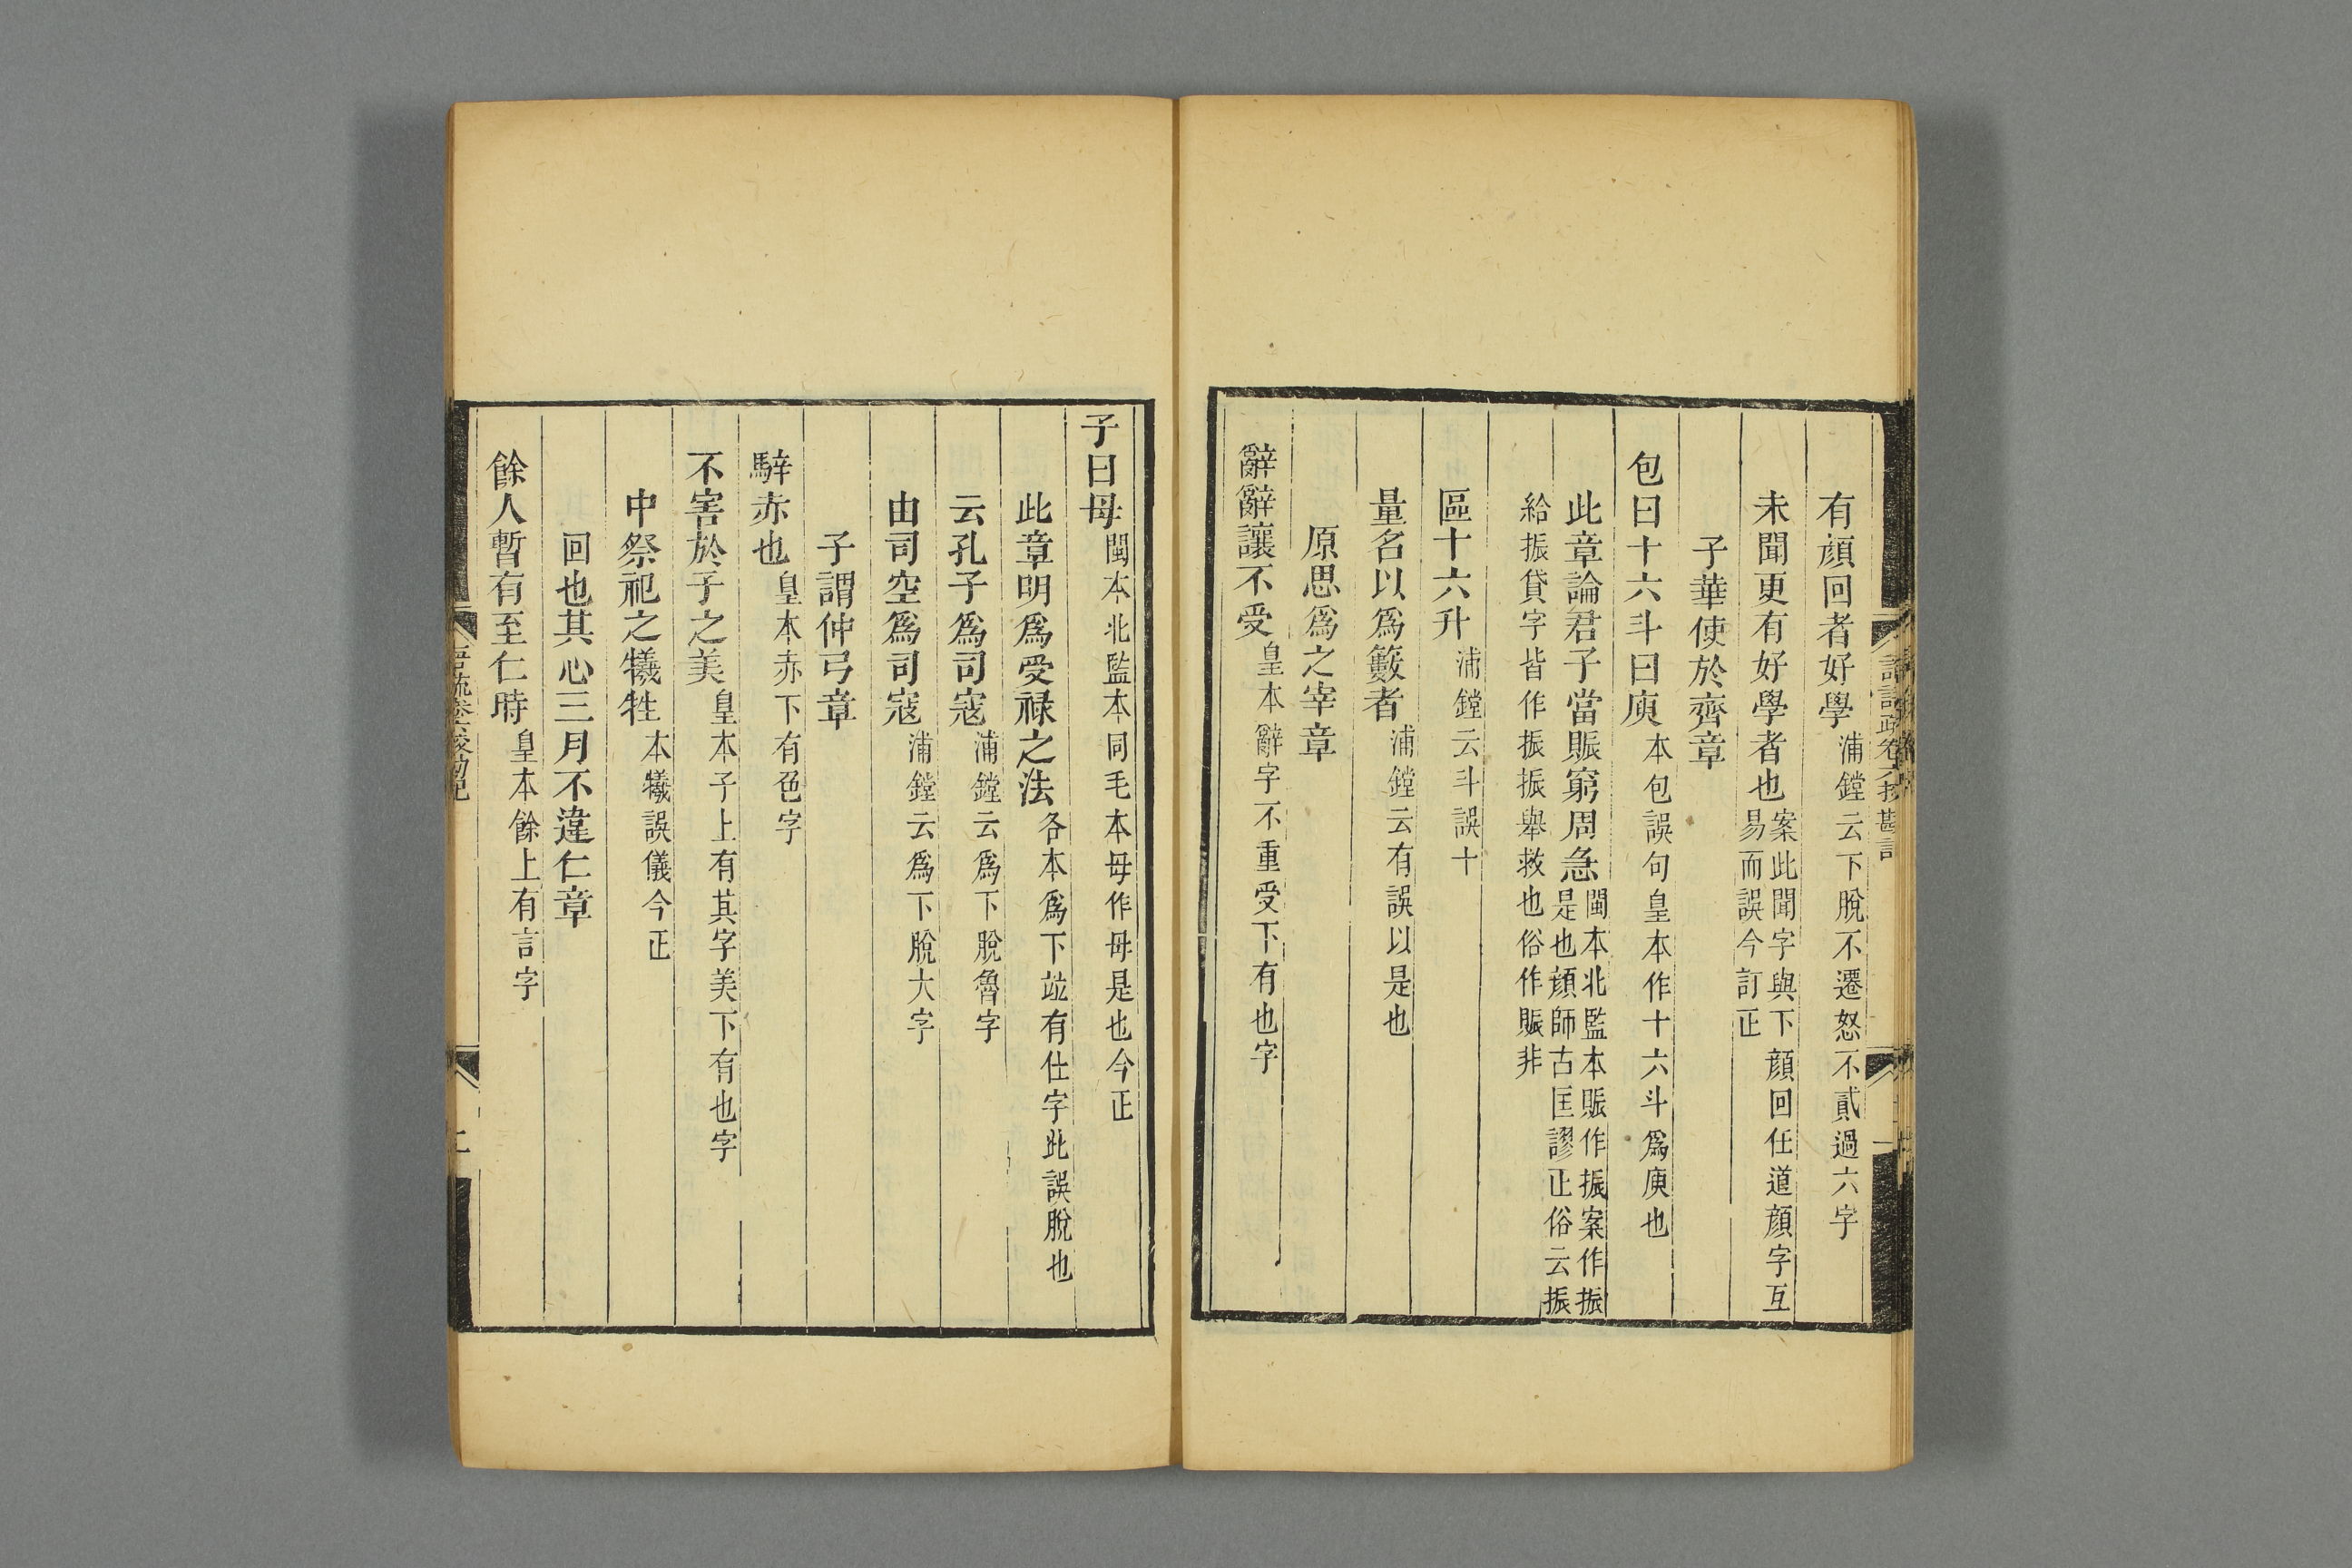 有顏回者好學浦鏜云下脫不遷怒不貳過六字
未聞更有好學者也案此聞字與下顏回任道顏字互易而誤今訂正
子華使於齊章
包曰十六斗曰庾本包誤句皇本作十六斗爲庾也
此章論君子當賑窮周急閩本北監本賑作振案作振是也顏師古匡謬正俗云振
給振貸字皆作振振舉救也俗作賑非
區十六升浦鏜云斗誤十
量名以爲籔者浦鏜云有誤以是也
原思爲之宰章
辭辭讓不受皇本辭字不重受下有也字
子曰毋閩本北監本同毛本毋作母是也今正
此章明爲受祿之法各本爲下竝有仕字此誤脫也
云孔子爲司寇浦鏜云爲下脫魯字
由司空爲司寇浦鏜云爲下脫大字
子謂仲弓章
騂赤也皇本赤下有色字
不害於子之美皇本子上有其字美下有也字
中祭祀之犧牲本犧誤儀今正
回也其心三月不違仁章
餘人暫有至仁時皇本餘上有言字